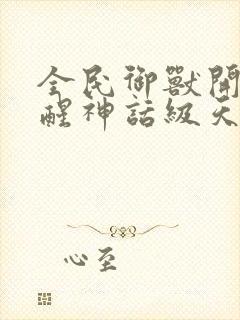 全民御獸開
醒神話級天
心至